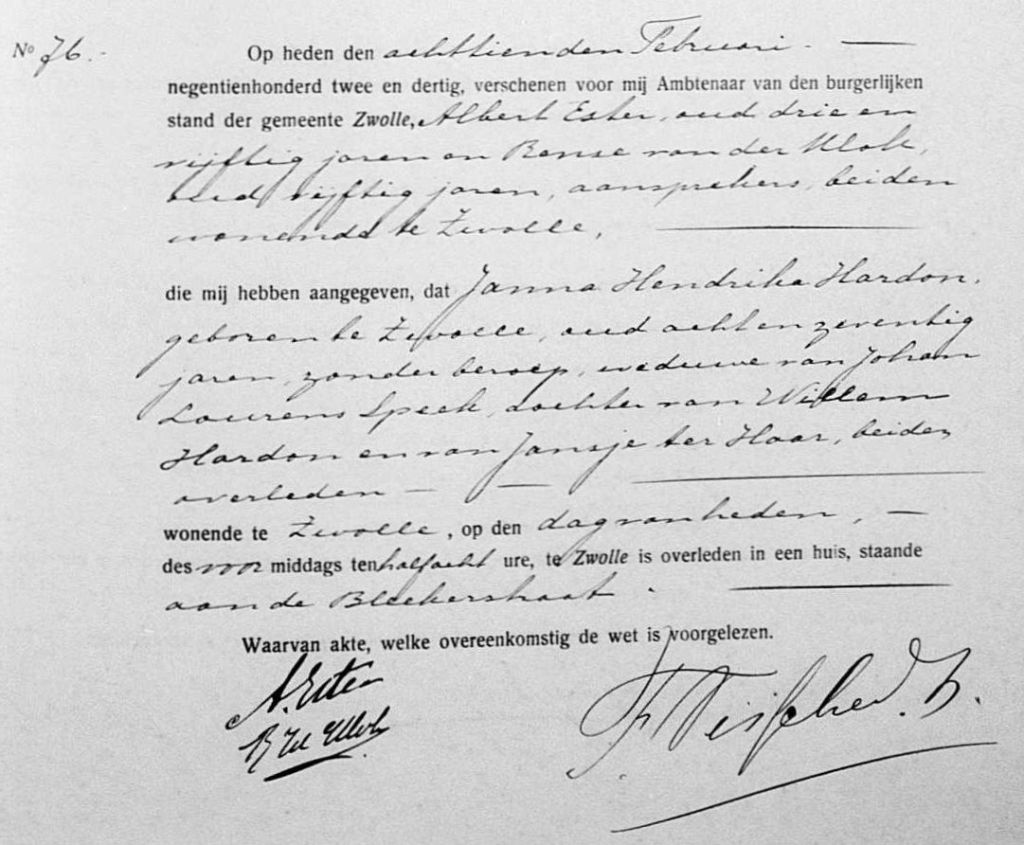 No 76.-
Op heden den achttienden Februari. —
negentienhonderd twee en dertig, verschenen voor mij Ambtenaar van den burgerlijken
stand der gemeente Zwolle, Albert Ester, oud drie en
vijftig jaren en Bense van der Vlok,
oud vijftig jaren, aansprekers, beiden
wonende te Zwolle, —
die mij hebben aangegeven, dat Janna Hendrika Hardon,
geboren te Zwolle, oud acht en zeventig
jaren, zonder beroep, weduwe van Johan
Lourens Speek, dochter van Willem
Hardon en van Jansje ter Haar, beiden
overleden — — —
wonende te Zwolle, op den dag van heden, —
des voor middags ten half acht ure, te Zwolle is overleden in een huis, staande
aan de Bleekerstraat. —
Waarvan akte, welke overeenkomstig de wet is voorgelezen.
A. Ester